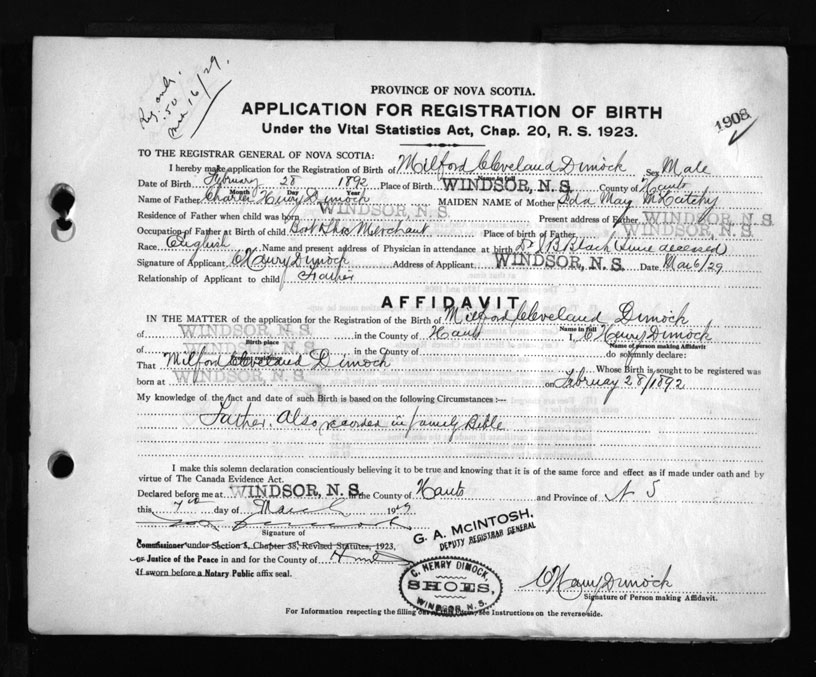 Reg
.50
16/29.
PROVINCE OF NOVA SCOTIA.
APPLICATION FOR REGISTRATION OF BIRTH
Under the Vital Statistics Act, Chap. 20, R. S. 1923.
1908
TO THE REGISTRAR GENERAL OF NOVA SCOTIA:
I hereby make application for the Registration of Birth of Milford Cleveland Dimock Sex Male
Name in full
Date of Birth February 28 1892 Place of Birth WINDSOR, N. S. County of Hants
Month Day Year
Name of Father Charles Henry Dimock MAIDEN NAME of Mother Ida May
Residence of Father when child was born WINDSOR, N. S. Present address of Father WINDSOR, N. S.
Occupation of Father at Birth of child Boot & Shoe Merchant Place of birth of Father WINDSOR, N. S.
Race English Name and present address of Physician in attendance at birth Dr J B Black (since deceased)
Signature of Applicant C Henry Dimock Address of Applicant WINDSOR, N. S. Date Mar 6/29
Relationship of Applicant to child Father
AFFIDAVIT
IN THE MATTER of the application for the Registration of the Birth of Milford Cleveland Dimock
Name in full
of WINDSOR, N. S. in the County of Hants I, C Henry Dimock
Birth place Name of person making Affidavit
of WINDSOR, N. S. in the County of do solemnly declare:
That Milford Cleveland Dimock Whose Birth is sought to be registered was
born at WINDSOR, N. S. on February 28/1892
My knowledge of the fact and date of such Birth is based on the following Circumstances :—
Father. Also recorded in family Bible
I make this solemn declaration conscientiously believing it to be true and knowing that it is of the same force and effect as if made under oath and by
virtue of The Canada Evidence Act.
Declared before me at WINDSOR, N. S. in the County of Hants and Province of N S
this 7th day of March 1929
Signature of
G. A. McINTOSH,
DEPUTY REGISTRAR GENERAL
Commissioner under Section 3, Chapter 38, Revised Statutes, 1923,
or Justice of the Peace in and for the County of Hants
If sworn before a Notary Public affix seal.
C. HENRY DIMOCK,
SHOES,
WINDSOR, N. S.
C Henry Dimock
Signature of Person making Affidavit.
For Information respecting the filling out of this Form, see Instructions on the reverse side.